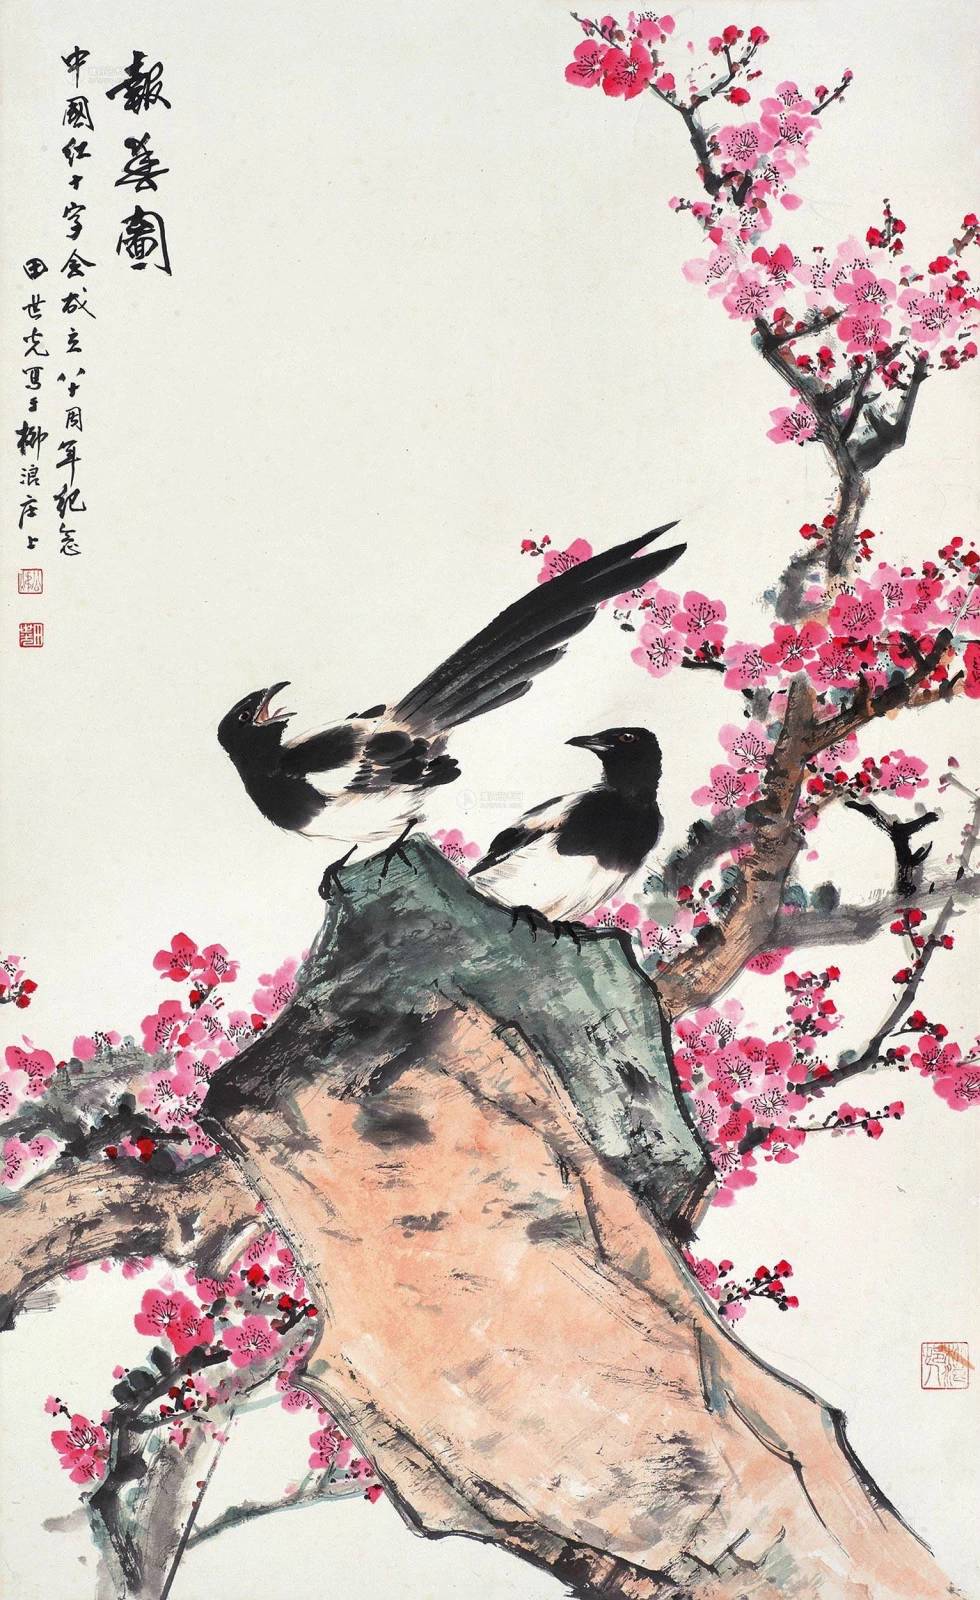 報春圖
中國红十字会成立八十周年纪念
田世光写于柳浪庄上